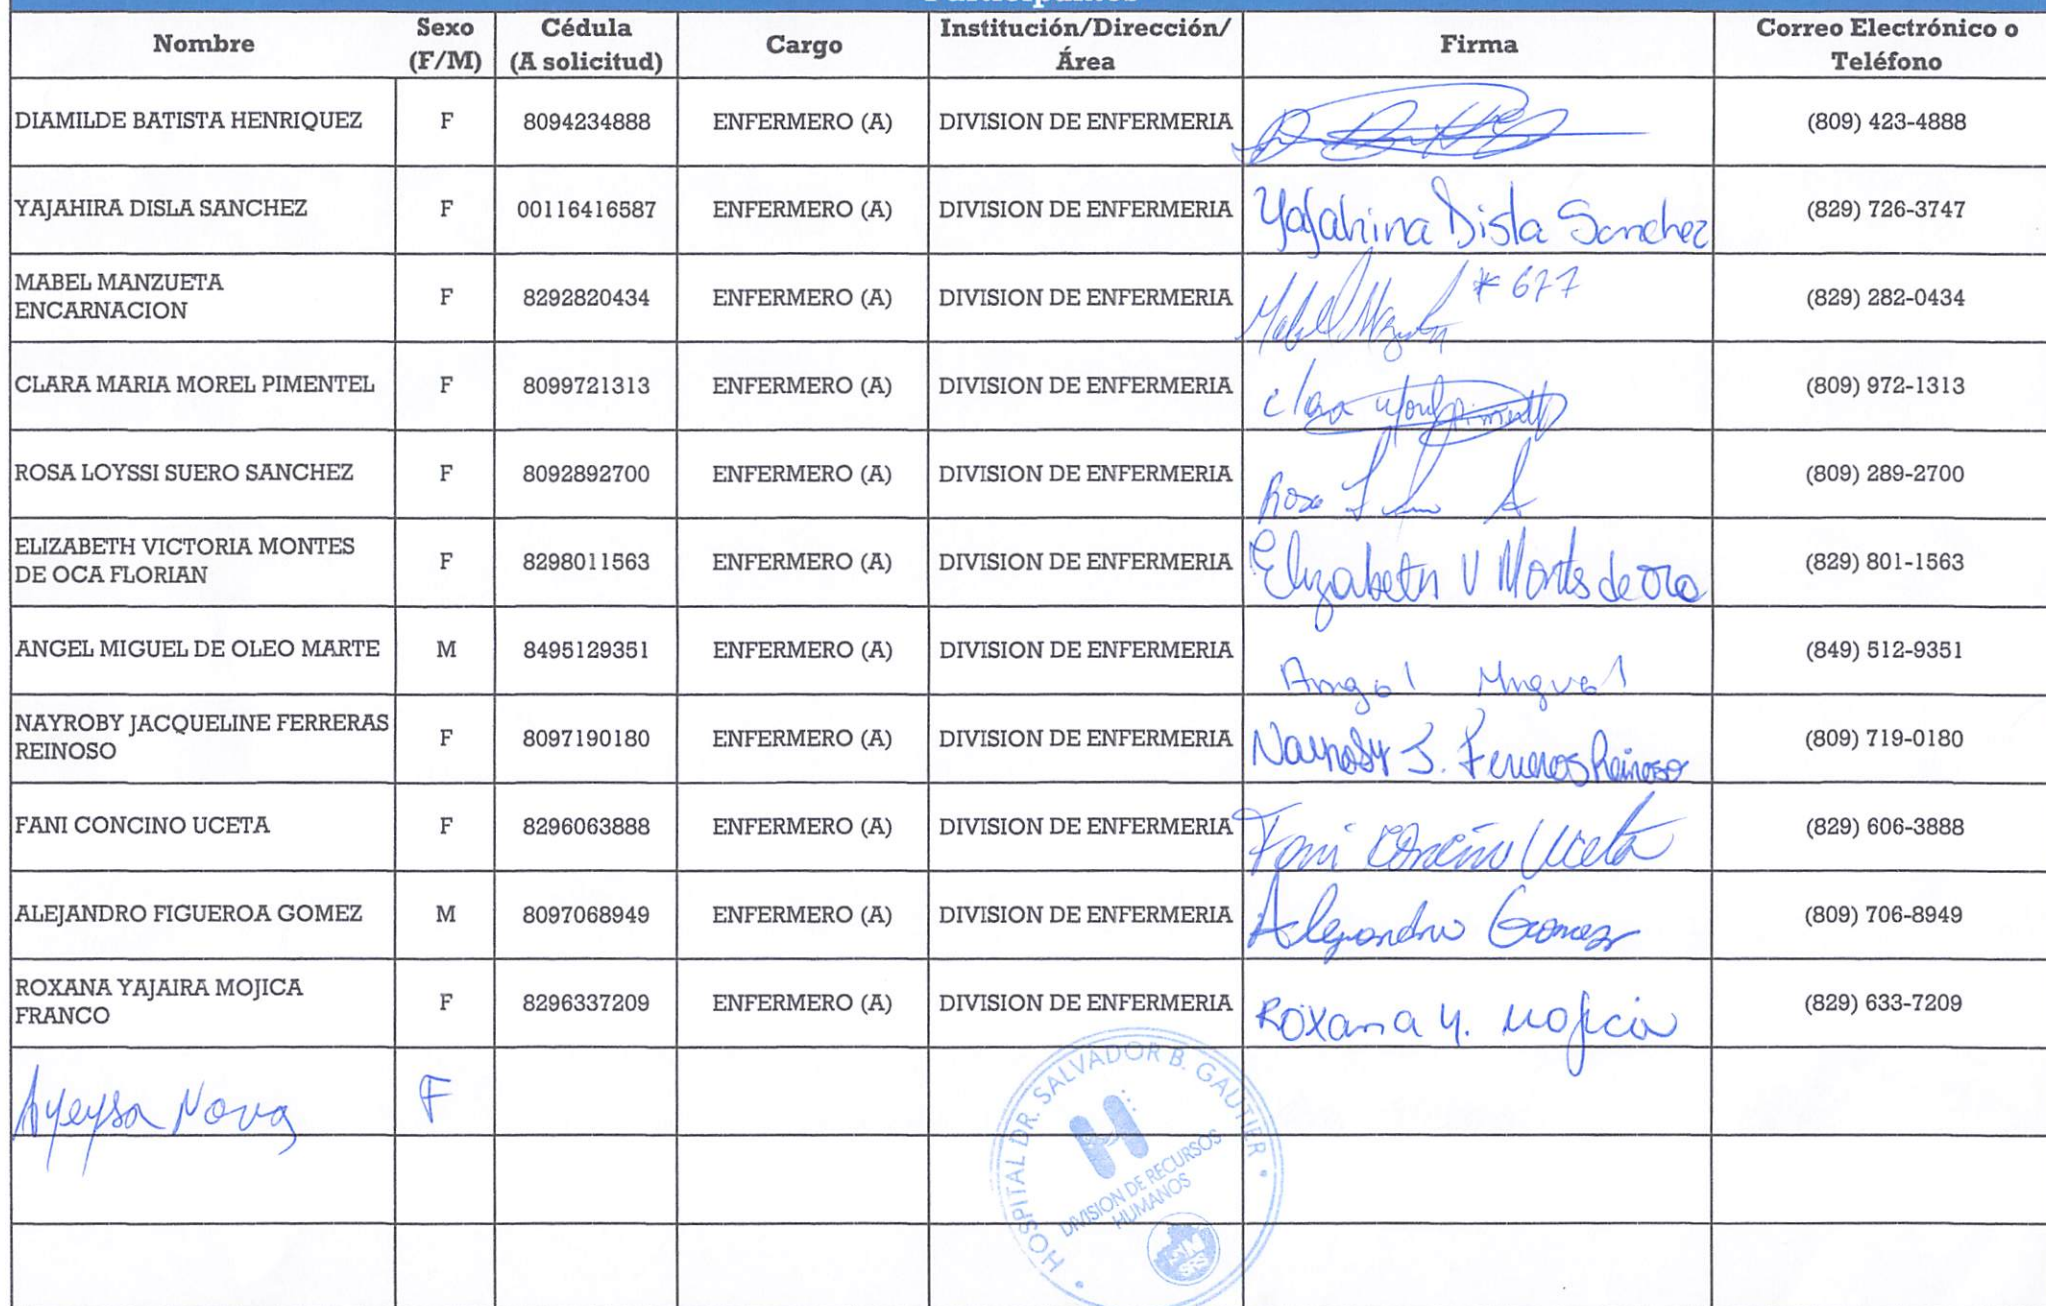 Participantes
Nombre Sexo (F/M) Cédula (A solicitud) Cargo Institución/Dirección/Área Firma Correo Electrónico o Teléfono
DIAMILDE BATISTA HENRIQUEZ F 8094234888 ENFERMERO (A) DIVISION DE ENFERMERIA (809) 423-4888
YAJAHIRA DISLA SANCHEZ F 00116416587 ENFERMERO (A) DIVISION DE ENFERMERIA Yajahira Disla Sanchez (829) 726-3747
MABEL MANZUETA ENCARNACION F 8292820434 ENFERMERO (A) DIVISION DE ENFERMERIA Mabel * 677 (829) 282-0434
CLARA MARIA MOREL PIMENTEL F 8099721313 ENFERMERO (A) DIVISION DE ENFERMERIA Clara Morel Pimentel (809) 972-1313
ROSA LOYSSI SUERO SANCHEZ F 8092892700 ENFERMERO (A) DIVISION DE ENFERMERIA Rosa L (809) 289-2700
ELIZABETH VICTORIA MONTES DE OCA FLORIAN F 8298011563 ENFERMERO (A) DIVISION DE ENFERMERIA Elizabeth V Montes de Oca (829) 801-1563
ANGEL MIGUEL DE OLEO MARTE M 8495129351 ENFERMERO (A) DIVISION DE ENFERMERIA Angel Miguel (849) 512-9351
NAYROBY JACQUELINE FERRERAS REINOSO F 8097190180 ENFERMERO (A) DIVISION DE ENFERMERIA Nayroby J. Ferreras Reinoso (809) 719-0180
FANI CONCINO UCETA F 8296063888 ENFERMERO (A) DIVISION DE ENFERMERIA Fani Concino Uceta (829) 606-3888
ALEJANDRO FIGUEROA GOMEZ M 8097068949 ENFERMERO (A) DIVISION DE ENFERMERIA Alejandro Gomez (809) 706-8949
ROXANA YAJAIRA MOJICA FRANCO F 8296337209 ENFERMERO (A) DIVISION DE ENFERMERIA Roxana Y. Mojica (829) 633-7209
Ayeysa Nova F
HOSPITAL DR. SALVADOR B. GAUTIER
DIVISION DE RECURSOS
HUMANOS